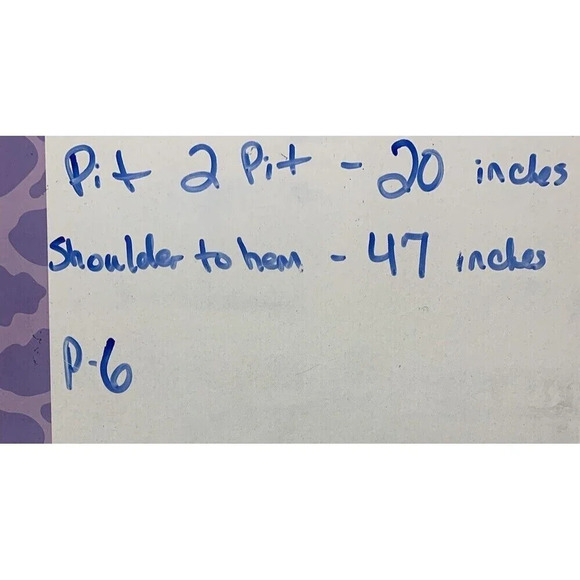 Pit 2 Pit - 20 inches
Shoulder to hem - 47 inches
P-6